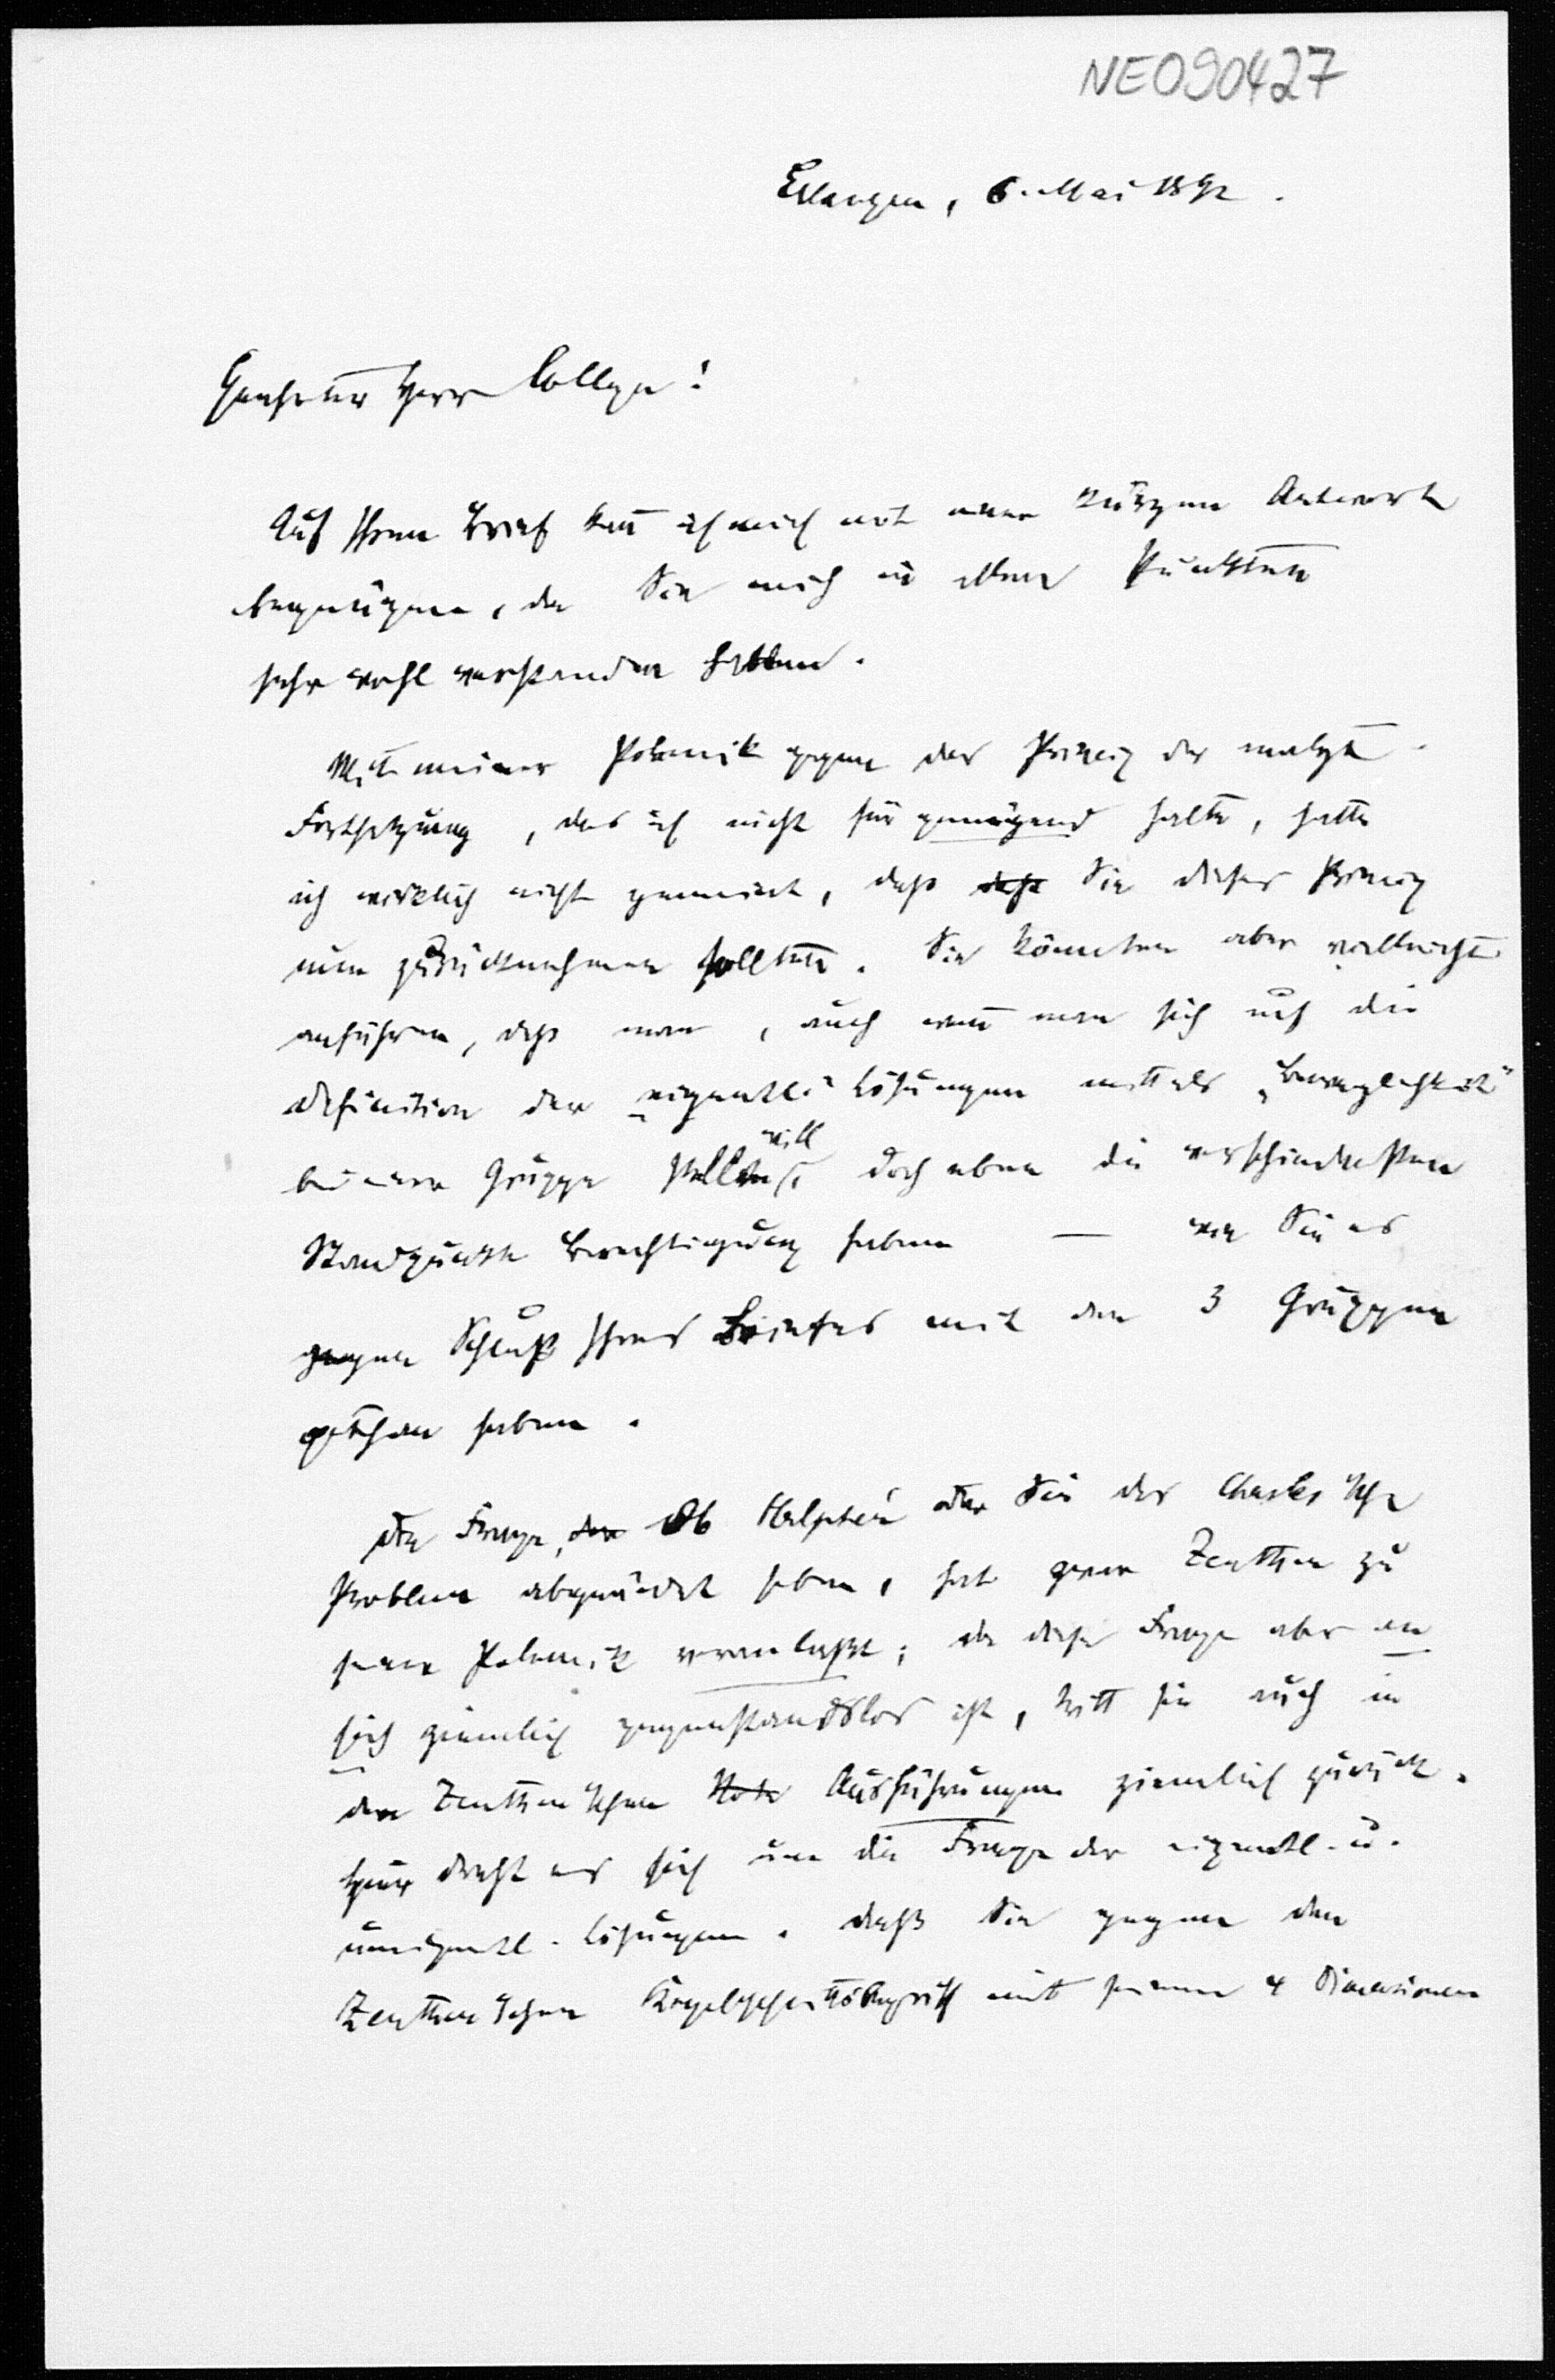 NE090427
Erlangen, 6. Mai 1892.
Geehrter Herr College!
Auf Ihren Brief kann ich mich mit einer kurzen Antwort
begnügen, da Sie mich in allen Punkten
sehr wohl verstanden haben.
Mit meiner Polemik gegen das Princip der analyt.
Fortsetzung, das ich nicht für genügend halte, hatte
ich wirklich nicht gemeint, daß daß Sie dieses Princip
nun zurücknehmen sollten. Sie könnten aber vielleicht
anführen, daß man, auch wenn man sich auf die
Definition der eigentl. Lösungen mittels „Beweglichkeit"
bei einer Gruppe stellen will, doch eben die verschiedensten
Standpunkte Berechtigung haben — wie Sie es
gegen Schluß Ihres Briefes mit den 3 Gruppen
gethan haben.
Die Frage, ob Halphen oder Sie das Chasles'sche
Problem abgeändert haben, hat zwar Zeuthen zu
seiner Polemik veranlaßt; da diese Frage aber an
sich ziemlich gegenstandslos ist, tritt sie auch in
den Zeuthen'schen Note Ausführungen ziemlich zurück.
Hier dreht es sich um die Frage der eigentl. u.
uneigentl. Lösungen. Daß Sie gegen den
Zeuthen'schen Kegelschnittsbegriff mit seinen 4 Dimensionen